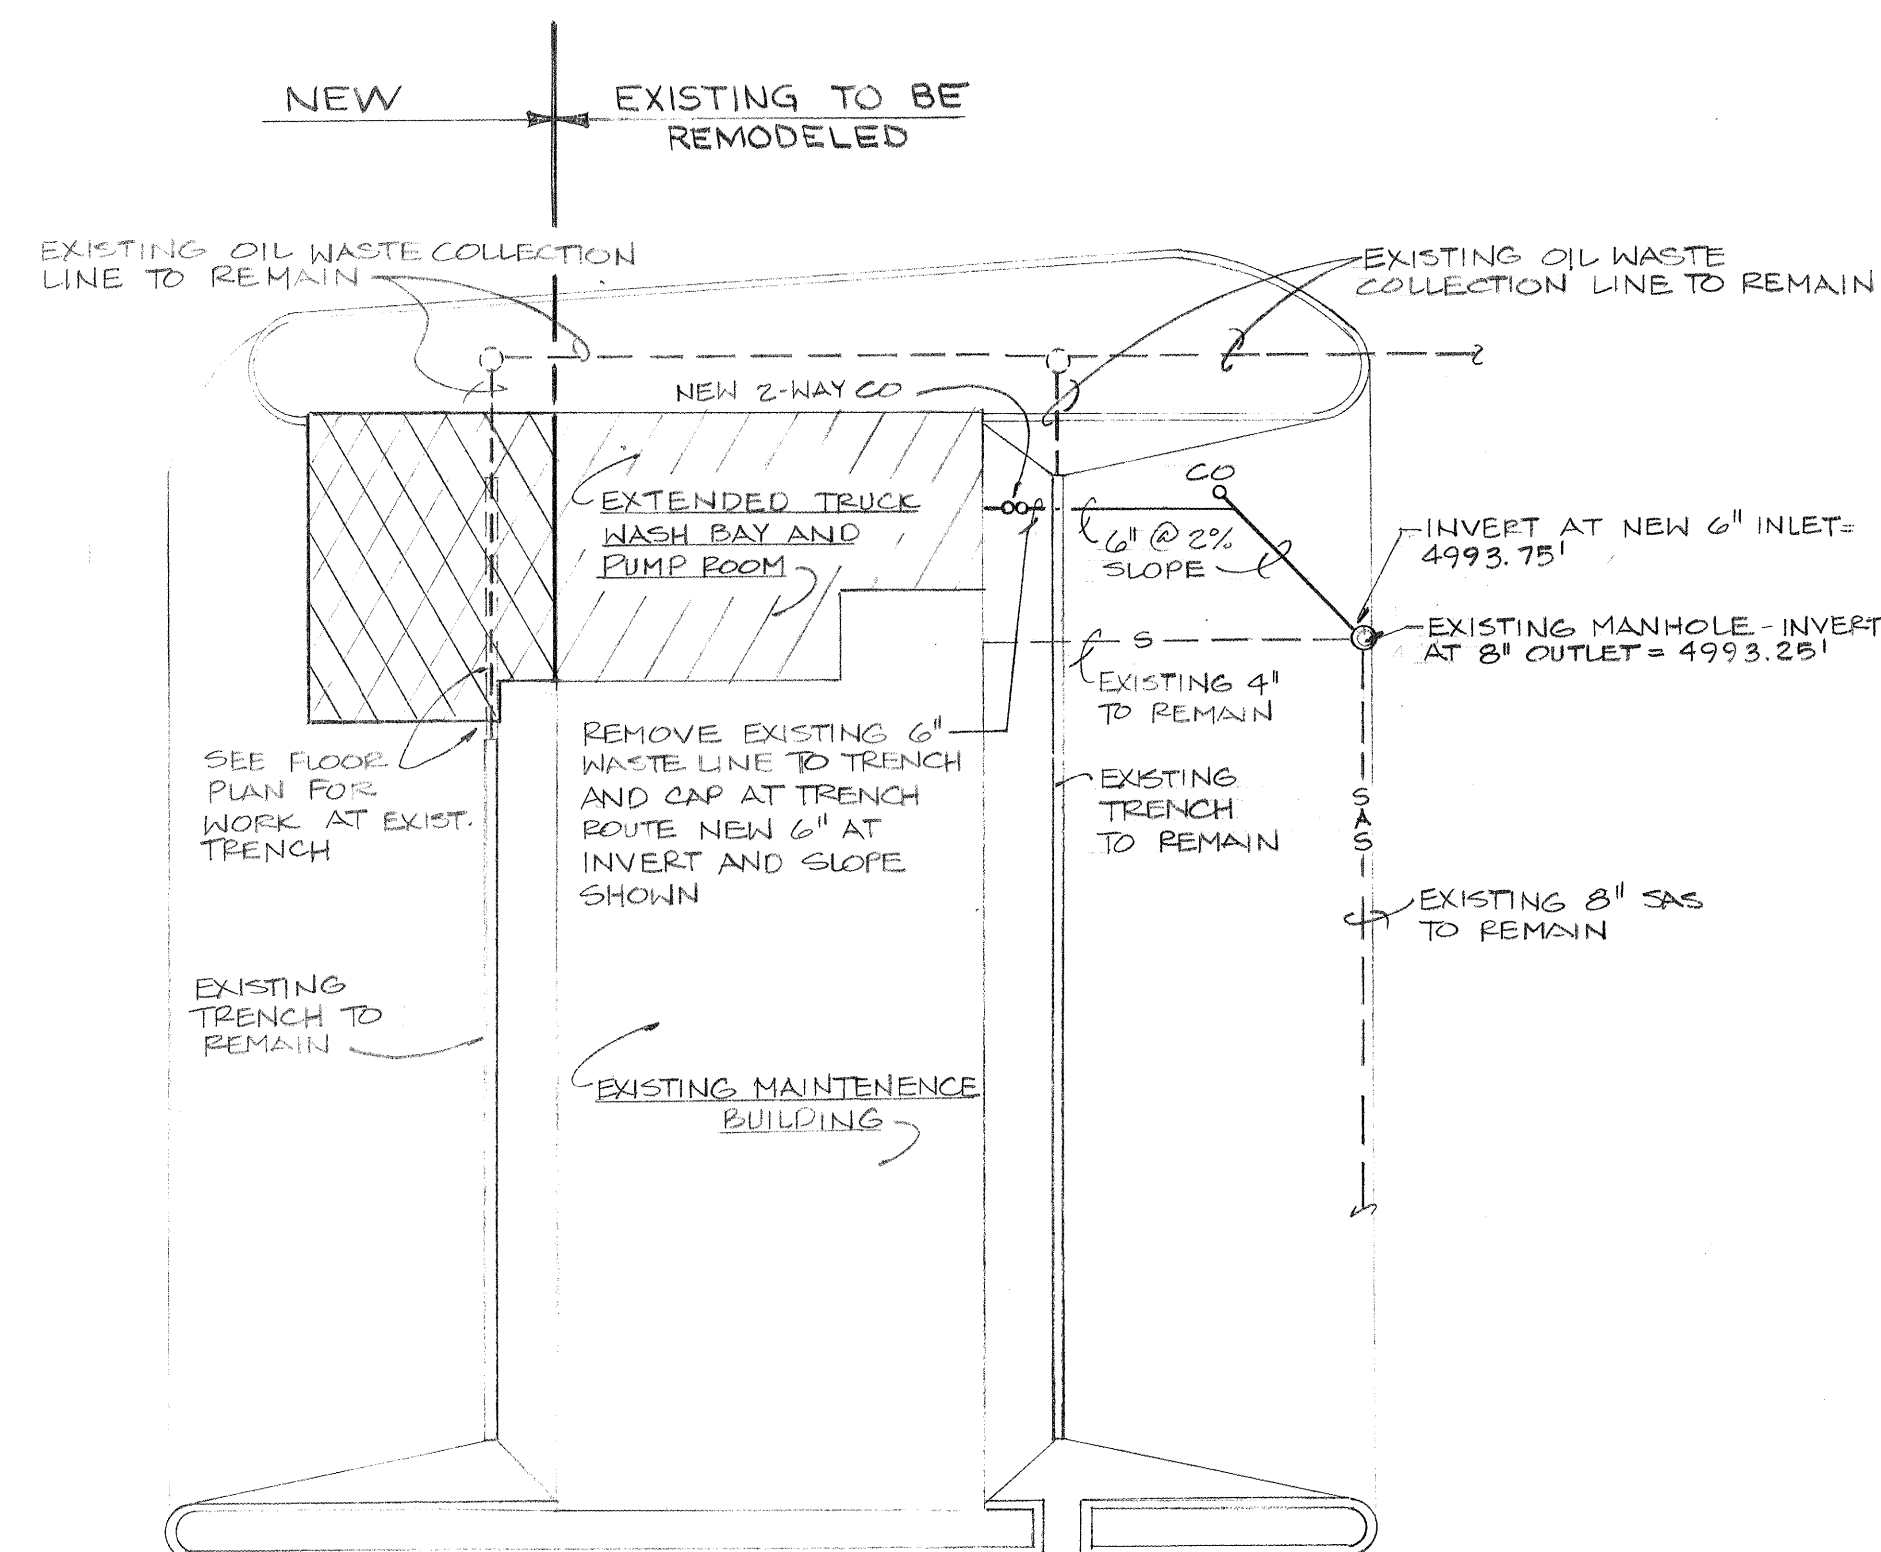 NEW
EXISTING TO BE
REMODELED
EXISTING OIL WASTE COLLECTION
LINE TO REMAIN
EXISTING OIL WASTE
COLLECTION LINE TO REMAIN
NEW 2-WAY CO
CO
EXTENDED TRUCK
WASH BAY AND
PUMP ROOM
6" @ 2%
SLOPE
INVERT AT NEW 6" INLET=
4993.75'
EXISTING MANHOLE - INVERT
AT 8" OUTLET = 4993.25'
S
EXISTING 4"
TO REMAIN
SEE FLOOR
PLAN FOR
WORK AT EXIST.
TRENCH
REMOVE EXISTING 6"
WASTE LINE TO TRENCH
AND CAP AT TRENCH
ROUTE NEW 6" AT
INVERT AND SLOPE
SHOWN
EXISTING
TRENCH
TO REMAIN
SAS
EXISTING 8" SAS
TO REMAIN
EXISTING
TRENCH TO
REMAIN
EXISTING MAINTENENCE
BUILDING